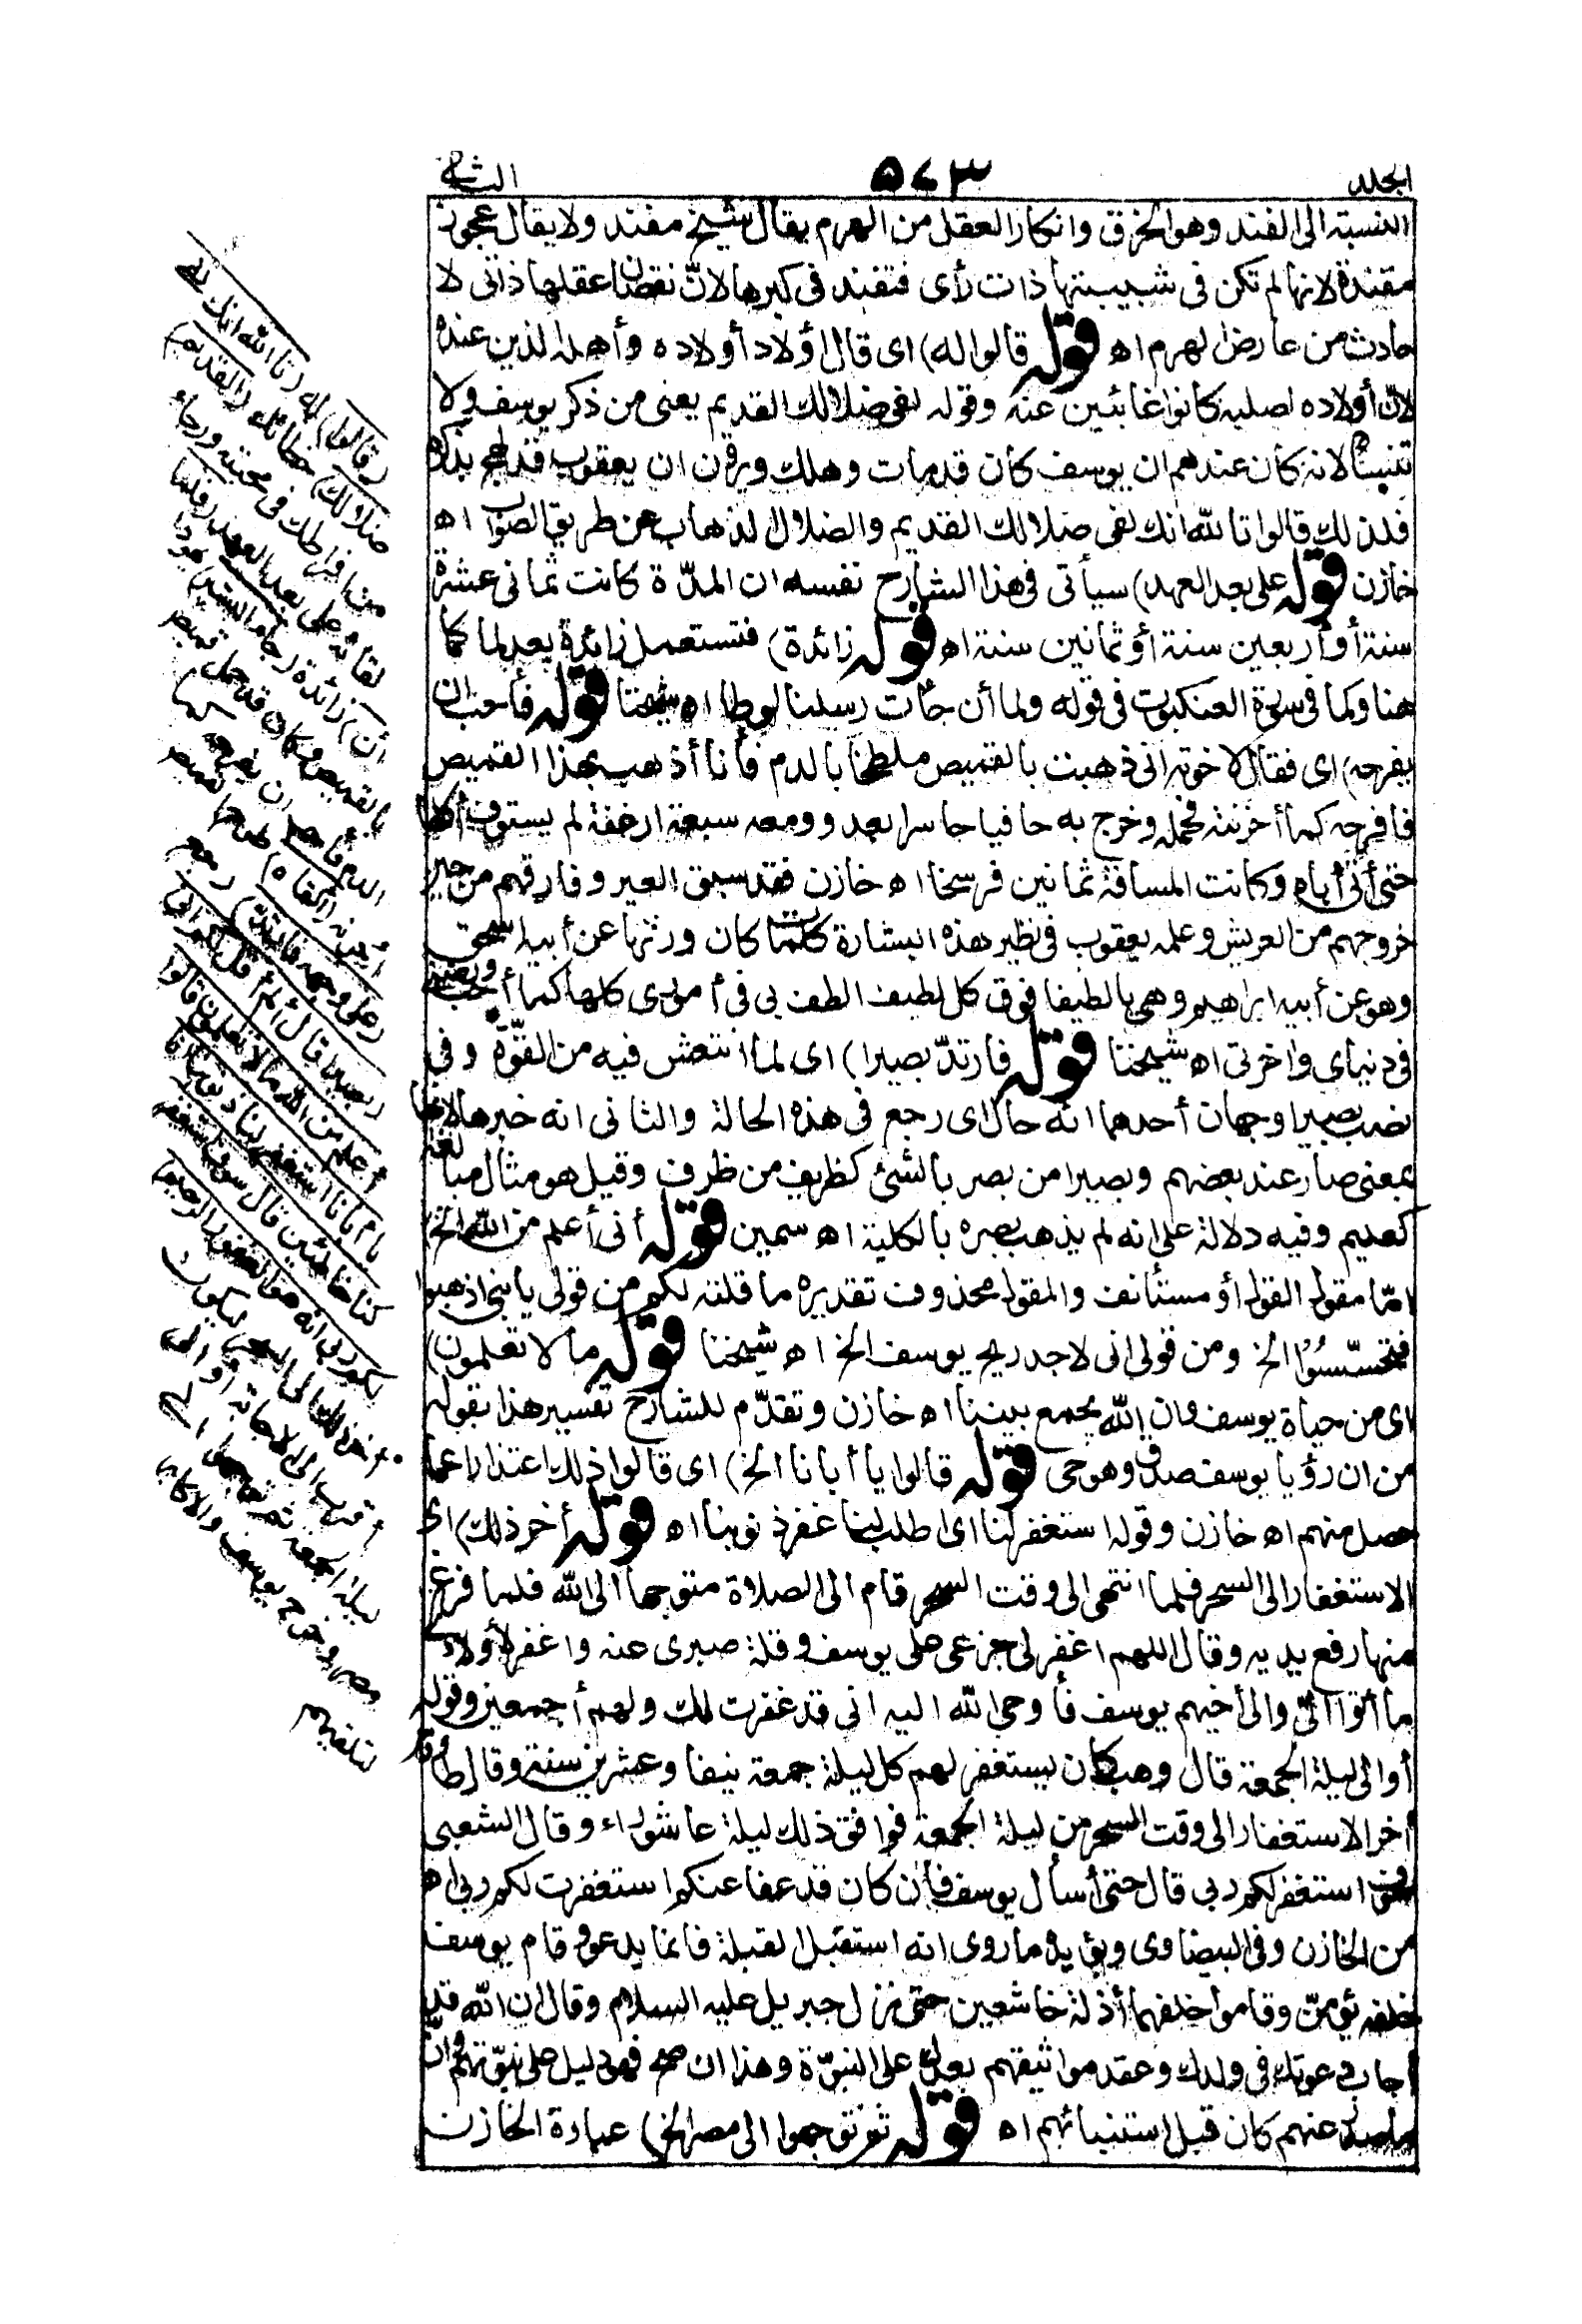 الجلد ٥٧٣ الثاني
النسبة الى الفند وهو الخرق وانكار العقل من الهرم يقال شيخ مفند ولا يقال عجوز
مفندة لانها لم تكن فى شبيبتها ذات رأى فتفند فى كبرها لانّ نقصان عقلها ذاتى لا
حادث من عارض الهرم اه قوله قالوا له) اى قال أولاد أولاده وأهله الذين عنده
لانّ أولاده لصلبه كانوا غائبين عنه وقوله لفى ضلالك القديم يعنى من ذكر يوسف ولا
تنساه لانه كان عندهم ان يوسف كان قد مات وهلك ويرون ان يعقوب قد لهج بذكره
فلذلك قالوا تالله انك لفى ضلالك القديم والضلال الذهاب عن طريق الصواب اه
خازن قوله على بعد العهد) سيأتى فى هذا الشارح نفسه ان المدّة كانت ثمانى عشرة
سنة أو أربعين سنة أو ثمانين سنة اه قوله زائدة) فتستعمل زائدة بعد لما كما
هنا وكما فى سورة العنكبوت فى قوله ولما أن جاءت رسلنا لوطا اه شيخنا قوله فأحب ان
يفرحه) اى فقال لاخوته انى ذهبت بالقميص ملطخا بالدم فأنا أذهب بهذا القميص
فافرحه كما أحزنته فحمله وخرج به حافيا حاسرا يعدو ومعه سبعة ارغفة لم يستوف أكلها
حتى أتى أباه وكانت المسافة ثمانين فرسخا اه خازن فقد سبق العير وفارقهم من حين
خروجهم من العريش وعلمه يعقوب فى نظير هذه البشارة كلمات كان ورثها عن أبيه اسحق
وهو عن أبيه ابراهيم وهى يا لطيفا فوق كل لطيف الطف بى فى أمورى كلها كما أحب ورضنى
فى دنياى واخرتى اه شيخنا قوله فارتدّ بصيرا) اى لما انتعش فيه من القوّة وفى
نصب بصيرا وجهان أحدهما انه حال اى رجع فى هذه الحالة والثانى انه خبرها لانها
بمعنى صار عند بعضهم وبصيرا من بصر بالشئ كظريف من ظرف وقيل هو مثال مبالغة
كعليم وفيه دلالة على انه لم يذهب بصره بالكلية اه سمين قوله أنى أعلم من الله الخ)
امّا مقول القول أو مستأنف والمقول محذوف تقديره ما قلته لكم من قولى يا بنى اذهبوا
فتحسّسوا الخ ومن قولى انى لاجد ريح يوسف الخ اه شيخنا قوله ما لا تعلمون)
اى من حياة يوسف وان الله يجمع بيننا اه خازن وتقدّم للشارح تفسير هذا بقوله
من ان رؤيا يوسف صدق وهو حى قوله قالوا يا أبانا الخ) اى قالوا ذلك اعتذارا عما
حصل منهم اه خازن وقوله استغفر لنا اى اطلب لنا غفر ذنوبنا اه قوله أخر ذلك) اى
الاستغفار الى السحر فلما انتهى الى وقت السحر قام الى الصلاة متوجها الى الله فلما فرغ
منها رفع يديه وقال اللهم اغفر لى جزعى على يوسف وقلة صبرى عنه واغفر لأولادى
ما أتوا الىّ والى أخيهم يوسف فأوحى الله اليه انى قد غفرت لك ولهم أجمعين وقوله
أو الى ليلة الجمعة قال وهب كان يستغفر لهم كل ليلة جمعة نيفا وعشرين سنة وقال طاوس
أخر الاستغفار الى وقت السحر من ليلة الجمعة فوافق ذلك ليلة عاشوراء وقال الشعبى
سوف استغفر لكم ربى قال حتى أسأل يوسف فأن كان قد عفا عنكم استغفرت لكم ربى اه
من الخازن وفى البيضاوى ويؤيده ما روى انه استقبل القبلة قائما يدعو وقام يوسف
خلفه يؤمّن وقاموا خلفهما أذلة خاشعين حتى نزل جبريل عليه السلام وقال ان الله قد
أجاب دعوتك فى ولدك وعقد مواثيقهم بعدك على النبوّة وهذا ان صح فهو دليل على نبوّتهم وانّ
ما صدر عنهم كان قبل استنبائهم اه قوله ثم توجهوا الى مصر الخ) عبارة الخازن
(قالوا) له (تالله انك لفى
ضلالك) خطائك (القديم)
من افراطك فى محبته ورجاء
لقائه على بعد العهد (فلما
أن) زائدة (جاء البشير) يهوذا
بالقميص وكان قد حمل قميص
الدم فأحب ان يفرحه كما
أحزنه (ألقاه) طرح القميص
(على وجهه فارتدّ) رجع
(بصيرا قال ألم أقل لكم انى
أعلم من الله ما لا تعلمون قالوا
يا أبانا استغفر لنا ذنوبنا انا
كنا خاطئين قال سوف أستغفر
لكم ربى انه هو الغفور الرحيم)
أخر ذلك الى السحر ليكون
أقرب الى الاجابة أو الى
ليلة الجمعة ثم توجهوا الى
مصر وخرج يوسف والاكابر
لتلقيهم